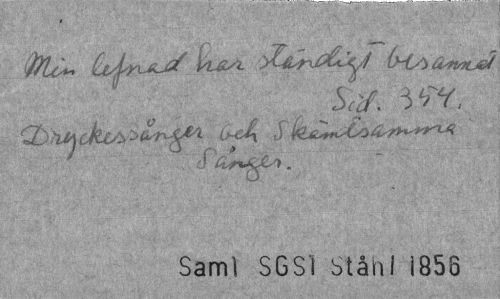 Min lefnad har ständigt besannat
Sid. 354.
Dryckessånger och Skämtsamma
Sånger.
Saml SGS1 Ståhl 1856